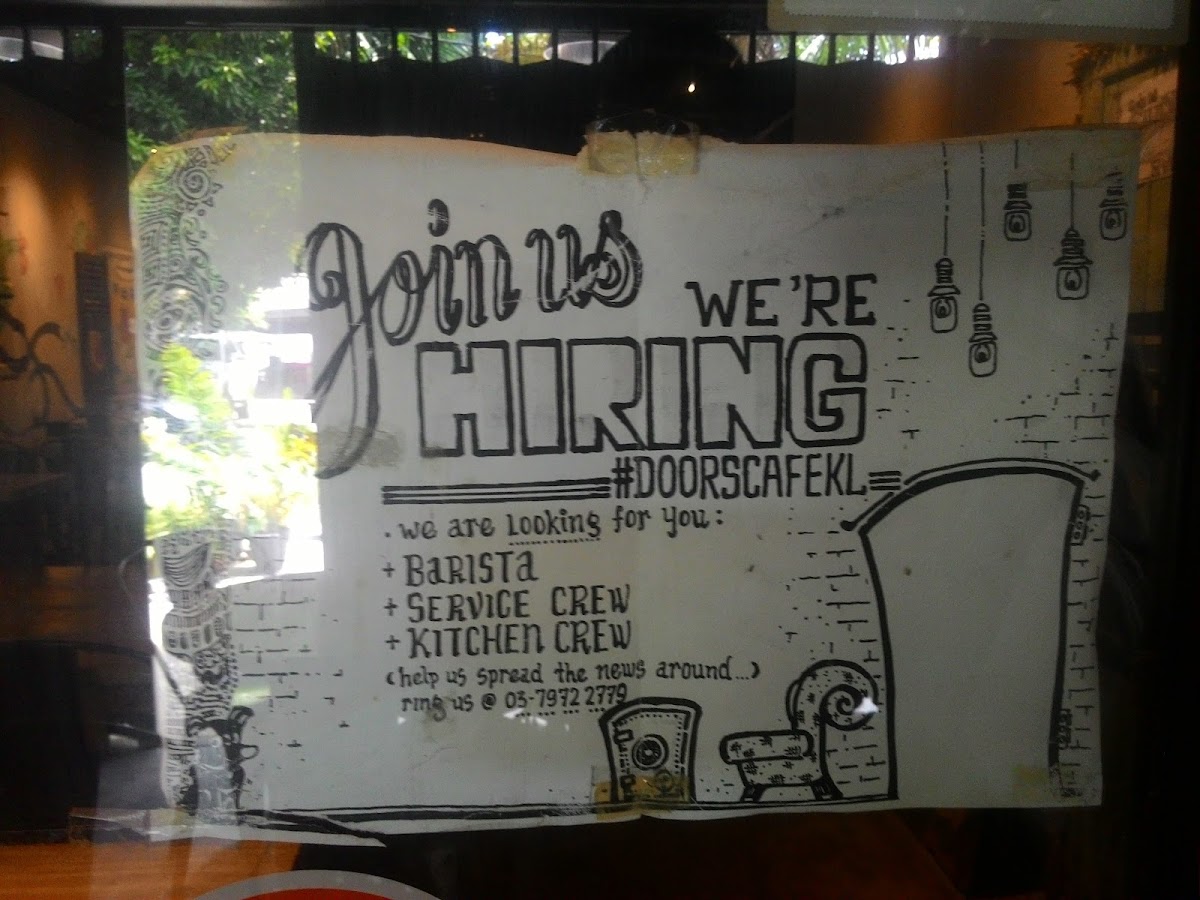 Join us
WE'RE
HIRING
#DOORSCAFEKL
. we are looking for you:
+ BARISTA
+ SERVICE CREW
+ KITCHEN CREW
(help us spread the news around...)
ring us @ 03-7972 2779